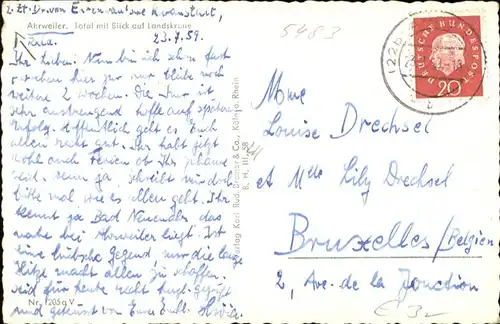 z. Zt. Dr. von
Ahrweiler. Total mit Blick auf Landskrone
23.7.59.
Ihr Lieben! Nun bin ich schon fast
Wochen hier zur Kur bleibe noch
weitere 2 Wochen. Die Kur ist
sehr anstrengend hoffe auf späteren
Erfolg. Hoffentlich geht es Euch
allen recht gut. Ihr habt jetzt
wohl auch Ferien ob Ihr zuhause
seid. wenn ja, schreibt mir doch
bitte mal wie es allen geht. Ihr
kennt ja Bad Neuenahr das
nahe bei Ahrweiler liegt. Ist
eine hübsche Gegend, nur die lange
Hitze macht allen zu schaffen.
seid für heute recht herzl. gegrüßt
und geküsst von Eurer
Nr. 1205 g V
Verlag Karl Rud. Bremer & Co., Köln a. Rhein
B. H. III. 58
5483
DEUTSCHE BUNDESPOST
20
(22b)
b
Mme
Louise Drechsel
et Mlle Lily Drechsel
Bruxelles / Belgien
2, Ave. de la Jonction